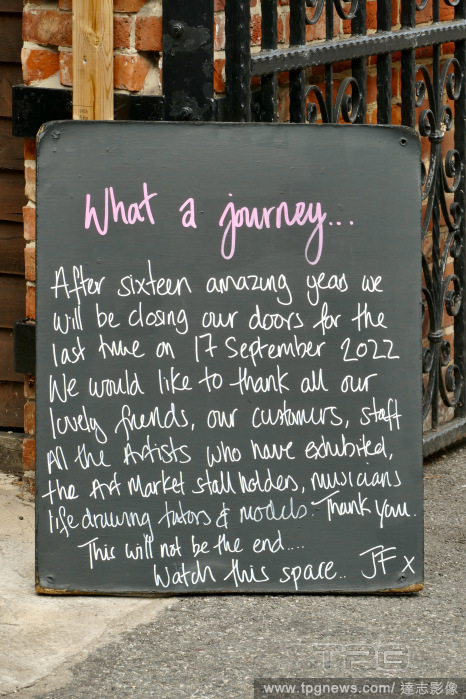 What a journey...
After sixteen amazing years we
will be closing our doors for the
last time on 17 September 2022
We would like to thank all our
lovely friends, our customers, staff
All the Artists who have exhibited,
the Art Market stall holders, musicians
life drawing tutors & models. Thank you.
This will not be the end....
Watch this space.. JF x
TPG
www.tpgnews.com/達志影像